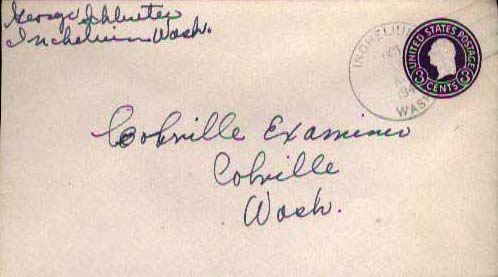 George Schlueter
Inchelium Wash.
INCHELIUM
194
WASH
UNITED STATES POSTAGE
3 CENTS 3
Colville Examiner
Colville
Wash.